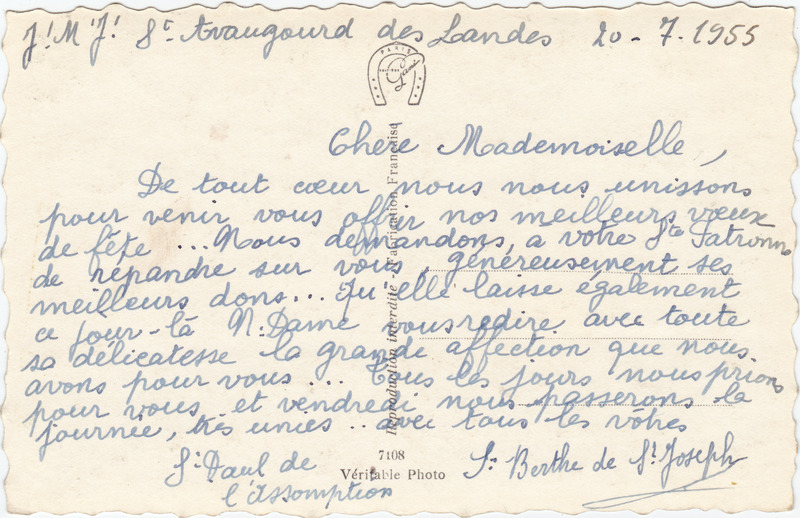 J!M!J! St Avaugourd des Landes 20-7-1955
PARIS
Chère Mademoiselle,
De tout cœur nous nous unissons
pour venir vous offrir nos meilleurs vœux
de fête ... Nous demandons à votre Ste Patronne
de répandre sur vous, généreusement ses
meilleurs dons... Qu'elle laisse également
ce jour-là N. Dame vous redire avec toute
sa délicatesse la grande affection que nous
avons pour vous ... Tous les jours nous prions
pour vous et vendredi nous passerons la
journée, très unies .. avec tous les vôtres
Sr Paul de
l'Assomption
Sr Berthe de St Joseph
Reproduction interdite - Fabrication Française
7108
Véritable Photo